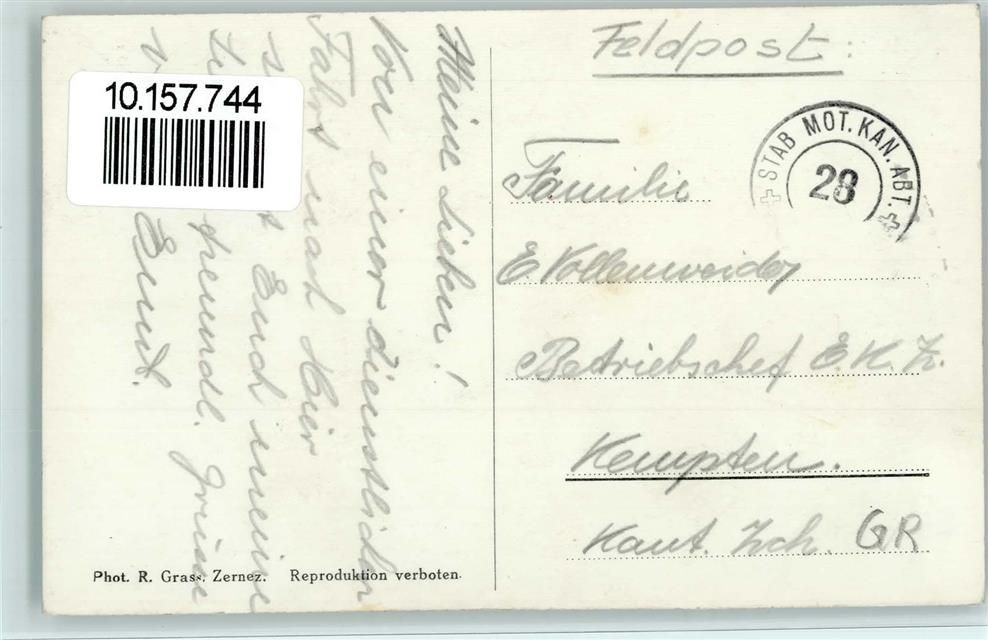 Feldpost:
STAB MOT. KAN. ABT.
28
Familie
E Vollenweider
Betriebschef E.K.Z.
Kempten.
Kant. Zch. GR
Meine Lieben!
Von einer dienstlichen
Fahrt nach Hier
Euch meine
freundl. Grüsse
Ernst.
10.157.744
Phot. R. Grass. Zernez. Reproduktion verboten.